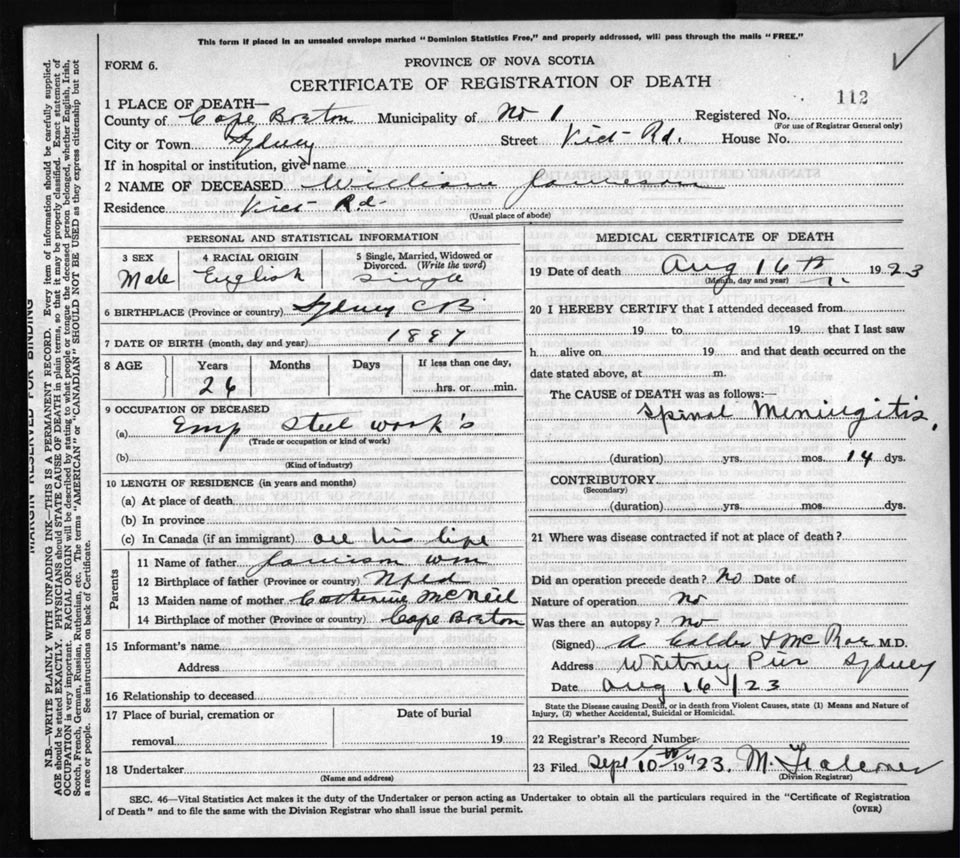 This form if placed in an unsealed envelope marked "Dominion Statistics Free," and properly addressed, will pass through the mails "FREE."
FORM 6.
PROVINCE OF NOVA SCOTIA
CERTIFICATE OF REGISTRATION OF DEATH
112
1 PLACE OF DEATH—
County of Cape Breton Municipality of No 1 Registered No.
(For use of Registrar General only)
City or Town Sydney Street Vict Rd. House No.
If in hospital or institution, give name
2 NAME OF DECEASED William
Residence Vict Rd
(Usual place of abode)
PERSONAL AND STATISTICAL INFORMATION
3 SEX 4 RACIAL ORIGIN 5 Single, Married, Widowed or Divorced. (Write the word)
Male English Single
6 BIRTHPLACE (Province or country) Sydney C B
7 DATE OF BIRTH (month, day and year) 1897
8 AGE Years Months Days If less than one day,
26 hrs. or min.
9 OCCUPATION OF DECEASED
(a) Emp Steel works
(Trade or occupation or kind of work)
(b)
(Kind of industry)
10 LENGTH OF RESIDENCE (in years and months)
(a) At place of death
(b) In province
(c) In Canada (if an immigrant) all his life
Parents
11 Name of father Wm
12 Birthplace of father (Province or country) Nfld
13 Maiden name of mother Catherine McNeil
14 Birthplace of mother (Province or country) Cape Breton
15 Informant's name
Address
16 Relationship to deceased
17 Place of burial, cremation or removal
Date of burial
19
18 Undertaker
(Name and address)
MEDICAL CERTIFICATE OF DEATH
19 Date of death Aug 16th 1923
(Month, day and year)
20 I HEREBY CERTIFY that I attended deceased from
19 to 19 that I last saw
h alive on 19 and that death occurred on the
date stated above, at m.
The CAUSE of DEATH was as follows:—
Spinal Meningitis.
(duration) yrs. mos. 14 dys.
CONTRIBUTORY
(Secondary)
(duration) yrs. mos. dys.
21 Where was disease contracted if not at place of death?
Did an operation precede death? No Date of
Nature of operation No
Was there an autopsy? No
(Signed) A Calder & McRae M.D.
Address Whitney Pier Sydney
Date Aug 16/23
State the Disease causing Death, or in death from Violent Causes, state (1) Means and Nature of Injury, (2) whether Accidental, Suicidal or Homicidal.
22 Registrar's Record Number
23 Filed Sept 10th 1923. M.
(Division Registrar)
SEC. 46—Vital Statistics Act makes it the duty of the Undertaker or person acting as Undertaker to obtain all the particulars required in the "Certificate of Registration
of Death" and to file the same with the Division Registrar who shall issue the burial permit. (OVER)
MARGIN RESERVED FOR BINDING
N.B.—WRITE PLAINLY WITH UNFADING INK—THIS IS A PERMANENT RECORD. Every item of information should be carefully supplied.
AGE should be stated EXACTLY. PHYSICIANS should STATE CAUSE OF DEATH in plain terms, so that it may be properly classified. Exact statement of
OCCUPATION is very important. RACIAL ORIGIN will be described by stating to what people or tongue the deceased person belonged, whether English, Irish,
Scotch, French, German, Russian, Ruthenian, etc. The terms "AMERICAN" or "CANADIAN" SHOULD NOT BE USED as they express citizenship but not
a race or people. See instructions on back of Certificate.